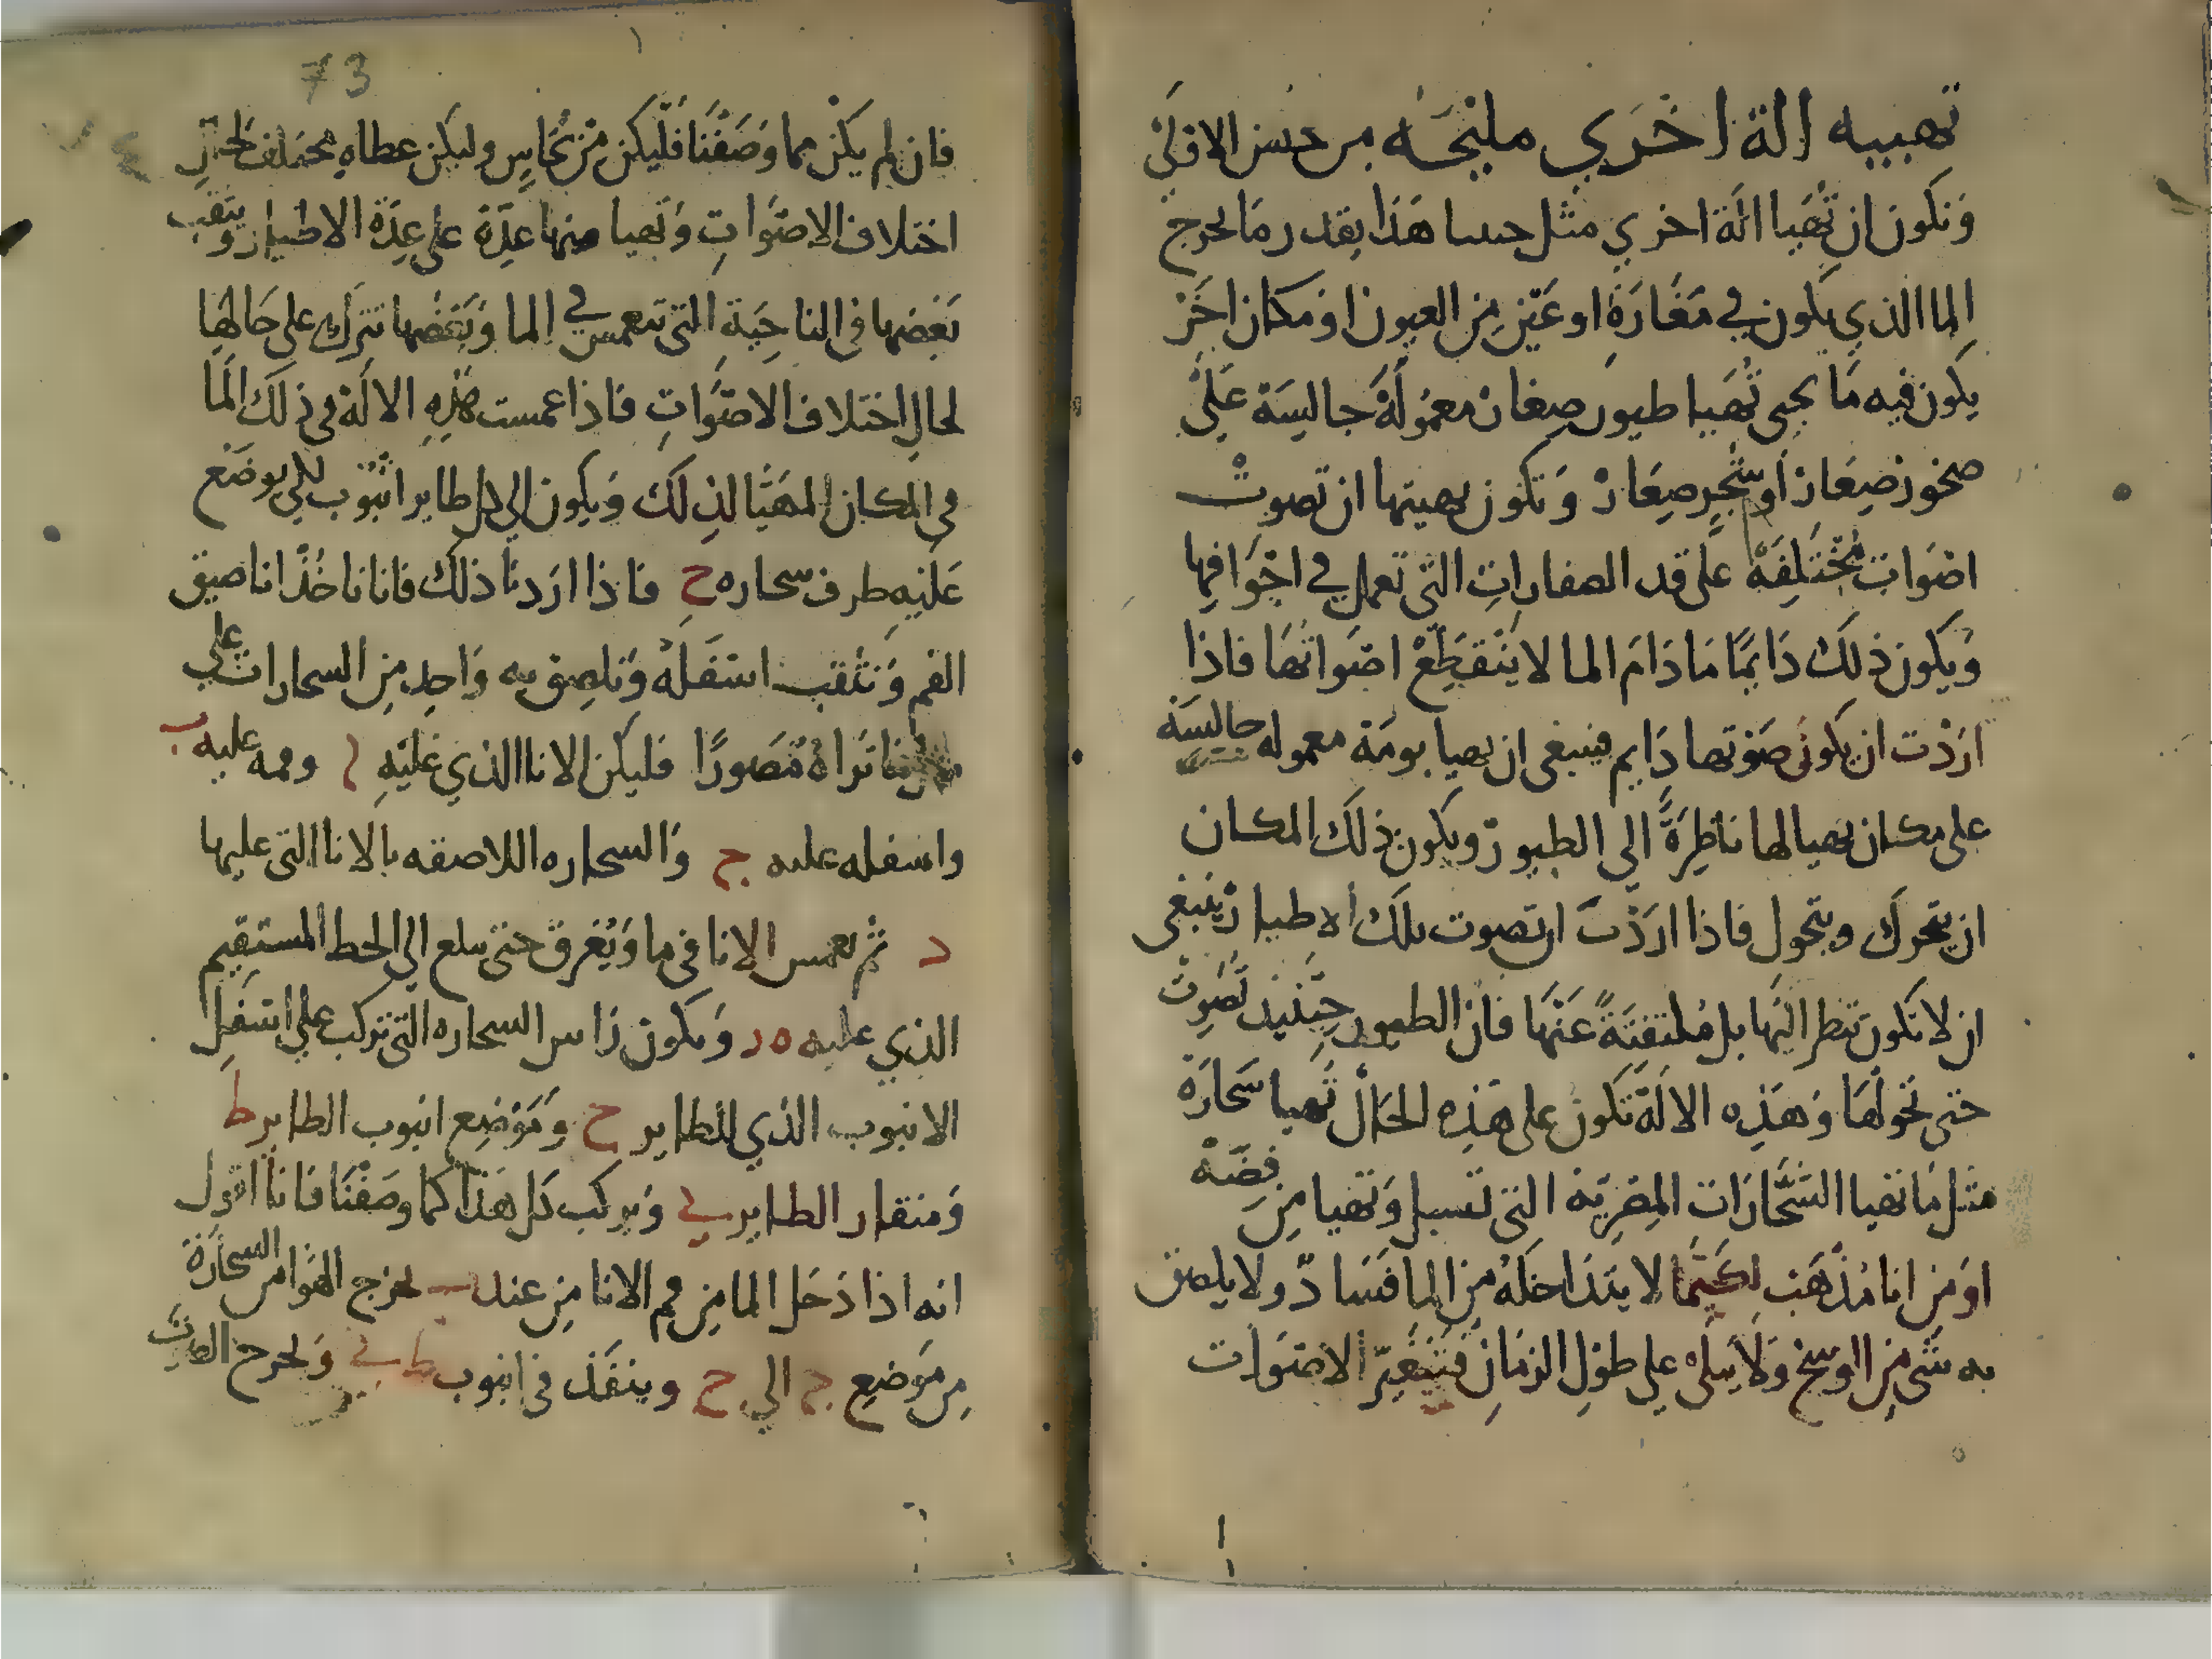 تهييه الة اخري مليحه من حسن الاولي
وَنكون ان تُهَيا الَة اخري مثل حسا هَذا بقدر مَا يخرج
الما الذي يَكون في مَغَارَةٍ او عَيْنٍ مِن العيون اوْ مكان اخَرْ
يكون فيه مَا يجي تُهَيا طيور صغار معْمُولَةْ جاليسَة عَلَيْ
صخور صِغَار او شجرٍ صِغَارْ وَ تكون بهيتها ان تصوت
اصْوَات مُخْتَلِفَة على قد الصفارات التى تعمل في اجْوَافِها
وَيكون ذلكْ دَايمًا مَا دَامَ الما لا يَنْقطِعْ اصْواتهَا فاذا
ارَدْت ان يكون صَوْتها دَايم فينبغى ان يهيا بومَة معموله جاليسَة
على مكان يهيا لها ناظِرَةً الى الطيور ويكون ذلكَ المكان
ان يتحرك ويتحول فاذا ارَدْتَ ان تصوت تلكَ الاطيارْ ينبغى
ان لا تكون تنظر اليْها بل مُلتفِتَةً عَنْها فان الطيور حِيْنئذ تُصَوِتْ
حتى تحولهَا وَهَذِه الالَة تَكون على هَذِه الحَالْ تُهيا سَحَارَة
مثل مَا تهيا السَّحَّارَات المِصْرِيَه التى تغسل وَتهيا مِن فِضَّةْ
اوَ مِن انا مُذْهَبْ لكَيْمَا لا يَتدَاخلَهُ مِن المَا فَسَادْ ولا يلصق
به شَى مِن الوسخ وَلَا يَبلىْ علي طوْلِ الزمَانِ فتَتَغَيّر الاصْوَات
73
فان لم يكنْ مما وَصَفْنَا فلْيكن مِنْ نُحَاسٍ وليكن عطاهِ مختلف لحَالِ
اختلاف الاصْوَاتِ وَتهيا منها عِدّةْ على عِدّةْ الاطيار ويثقب
بَعْضها فى الناحِيَة التى تنغمس في الما وَبَعْضها تترك على حَالهَا
لحال اختلاف الاصْوَاتِ فاذا غمست هَذِهِ الالَة في ذلكَ المَا
فى المكان المهَيَّا لذلكَ وَيكون الى كل طاير انْبُوب لكي يوضَع
عَليْهِ طرف سحاره ح فاذا ارَدنَا ذلك فانا ناخُذْ انا ضيق
الفم وَنثقب اسْفَلهُ وَنلصق به وَاحِد مِن السحارات على
مَا نَرَاهُ مُصَورًا فليكن الانا الذي عَليْهِ ا وفمه عليه ب
واسفله عليه ج وَالسحاره اللاصقه بالانا التى عليها
د ثم نغمس الانا فى ما وَيُغرق حتى يبلغ الى الخط المستقيم
الذي عليه ه ر وَيكون رَاس السحاره التى تركب على اسْفَلِ
الانبوب الذي للطاير ح وَمَوْضِع انبوب الطاير ط
وَمنقار الطاير ي وَيركب كل هَذا كما وصَفْنَا فانا اقول
انه اذا دَخل الما مِن فم الانا مِن عند ب يخرج الهَوا من السحارة
مِن مَوضِع ج الي ح وينفَذ فى انبوب ط ي وَيخرج الصَّوتْ